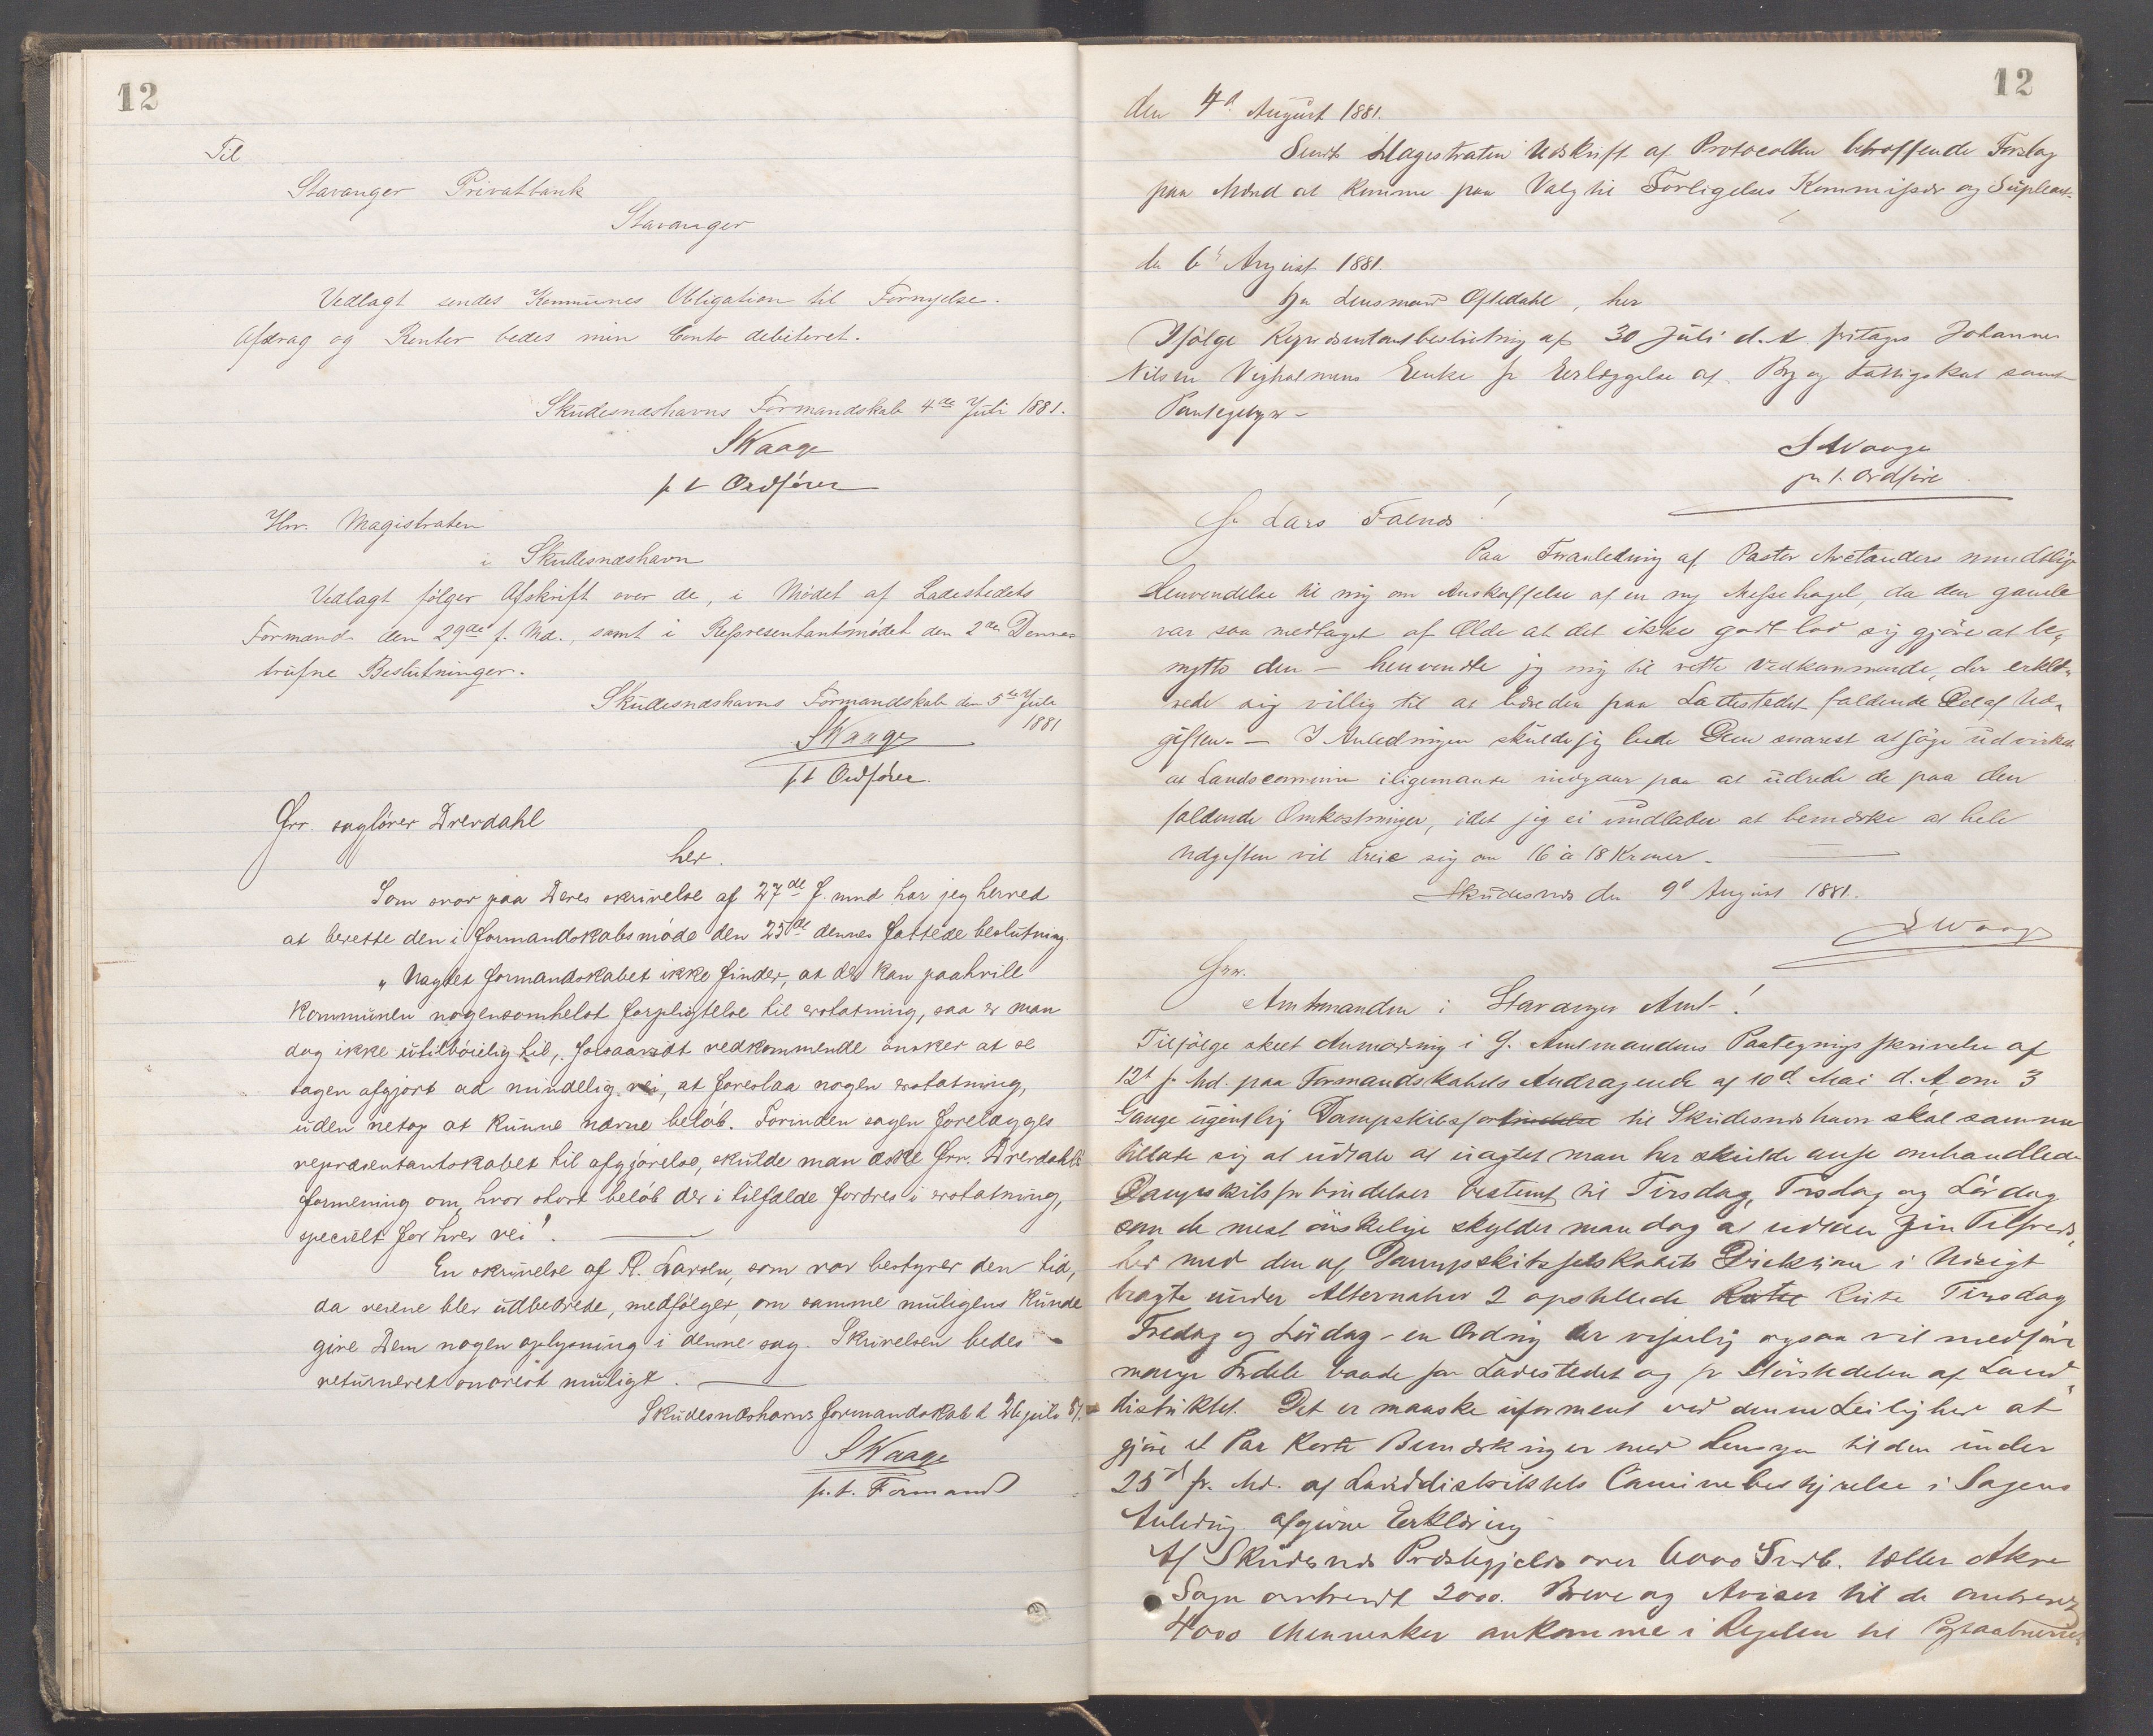 12
Til
Stavanger Privatbank
Stavanger
Vedlagt sendes Kommunes Obligation til Fornyelse.
Afdrag og Renter bedes min Conto debiteret.
Skudesnæshavns Formandskab 4de Juli 1881.
SWaage
p t Ordfører
Hrr. Magistraten
i Skudesnæshavn
Vedlagt følger Afskrift over de, i Mødet af Ladestedets
Formænd den 29de f. Md., samt i Representantmødet den 2den Dennes
trufne Beslutninger.
Skudesnæshavns Formandskab den 5te Juli
1881
SWaage
p t Ordfører.
Hrr. sagfører Drevdahl
her.
Som svar paa Deres skrivelse af 27de f. mnd har jeg herved
at berette den i formandskabsmøde den 25de dennes fattede beslutning
„Uagtet formandskabet ikke finder, at der kan paahvile
kommunen nogensomhelst forpligtelse til erstatning, saa er man
dog ikke utilbøielig til, forsaavidt vedkommende ønsker at se
sagen afgjort ad mindelig vei, at foreslaa nogen erstatning,
uden netop at kunne nævne beløb. Forinden sagen forelægges
repræsentantskabet til afgjørelse, skulde man æske Hrr. Drevdahls
formening om, hvor stort beløb der i tilfælde fordres i erstatning,
specielt for hver vei".
En skrivelse af R. Larsen, som var bestyrer den tid,
da veiene blev udbedrede, medfølger, om samme muligens kunde
give Dem nogen oplysning i denne sag. Skrivelsen bedes
returneret snarest muligt.
Skudesnæshavns formandskab d 26 juli 81.
SWaage
p.t. Formand
12
den 4d August 1881.
Sendt Magistraten Udskrift af Protocollen betræffende Forslag
paa Mænd at komme paa Valg til Forligelses Kommissær og Supleant
d. 6d August 1881.
Hr Lensmand Oftedahl, her
Ifølge Representantbeslutning af 30 Juli d. A. fritages Johannes
Nilsen Vigholmens Enke for Erlæggelse af By og Fattigskat samt
Pantegebyr -
SWaage
p t. Ordføre
Hr Lars Falnes!
Paa Foranledning af Pastor Arctanders mundtlige
Henvendelse til mig om Anskaffelse af en ny Messehagel, da den gamle
var saa medtaget af Ælde at det ikke godt lod sig gjøre at be-
nytte den — henvendte jeg mig til rette Vedkommende, der erklæ-
rede sig villig til at bære den paa Ladestedet faldende Del af Ud-
giften. — I Anledningen skulde jeg bede Dem snarest at søge udvirket
at Landscommunen iligemaade indgaar paa at udrede de paa den
faldende Omkostninger, idet jeg ei undlader at bemærke at hele
Udgiften vil dreie sig om 16 à 18 Kroner. —
Skudesnæs den 9d August 1881.
SWaage
Hrr.
Amtmanden i Stavanger Amt!
Tilfølge skeet Anmodning i H. Amtmandens Paategningsskrivelse af
12t f. Md. paa Formandskabets Andragende af 10d Mai d. A, om 3
Gange ugentlig Dampskibsforbindelse til Skudesnæshavn skal samme
tillade sig at udtale at uagtet man her skulde anse omhandlede
Dampskibsforbindelser bestemt til Tirsdag, Torsdag og Lørdag
som de mest ønskelige skylder man dog at udtale sin Tilfreds-
hed med den af Dampskibsselskabets Direktion i Udsigt
bragte under Alternativ 2 opstillede Rute Rute Tirsdag
Fredag og Lørdag - en Ordning der visselig ogsaa vil medføre
mange Fordele baade for Ladestedet og for Størstedelen af Land-
distriktet. Det er maaske uforment ved denne Leilighed at
gjøre et Par korte Bemærkninger med Hensyn til den under
25d f. Md. af Landdistriktets Communebestyrelse i Sagens
Anledning afgivne Erklæring
Af Skudesnæs Præstegjelds over 6000 Indb. tæller Akre
Sogn omtrendt 2000. Breve og Aviser til de omtrendt
4000 Mennesker ankomme i Regelen til Postaabneriet